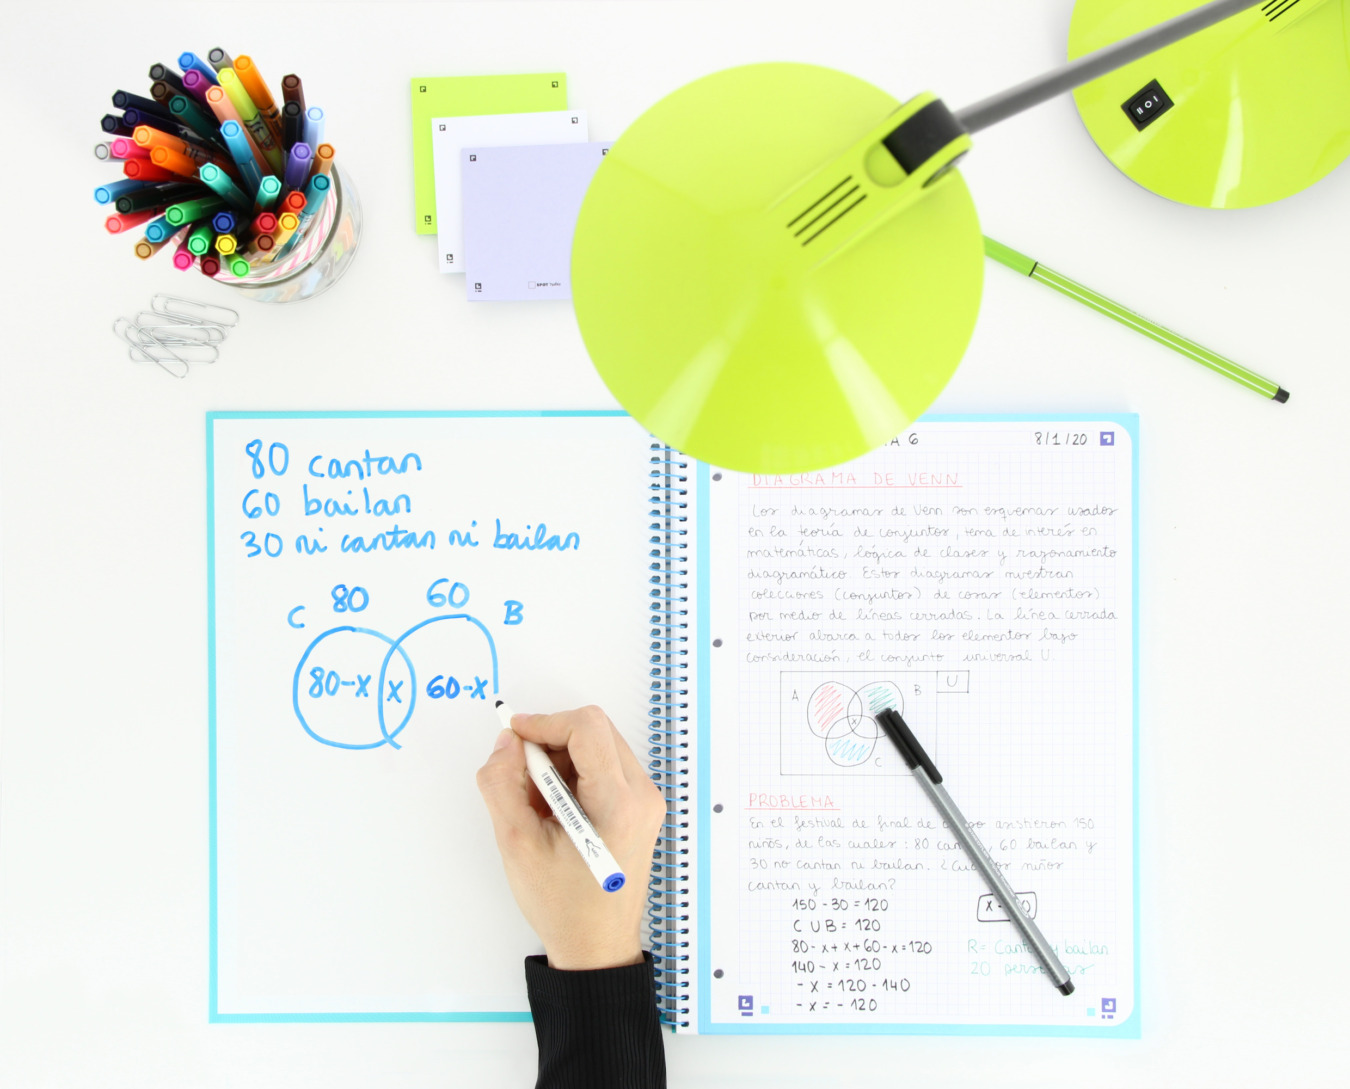 80 cantan
60 bailan
30 ni cantan ni bailan
80 60
C B
80-x x 60-x
6 8/1/20
DIAGRAMA DE VENN
Los diagramas de Venn son esquemas usados
en la teoría de conjuntos, tema de interés en
matemáticas, lógica de clases y razonamiento
diagramático. Estos diagramas muestran
colecciones (conjuntos) de cosas (elementos)
por medio de líneas cerradas. La línea cerrada
exterior abarca a todos los elementos bajo
consideración, el conjunto universal U.
U
A B
x
C
PROBLEMA
En el festival de final de asistieron 150
niños, de los cuales: 80 , 60 bailan y
30 no cantan ni bailan. ¿ niños
cantan y bailan?
150 - 30 = 120
C U B = 120
80 - x + x + 60 - x = 120
140 - x = 120
- x = 120 - 140
- x = - 120
x
R= y bailan
20